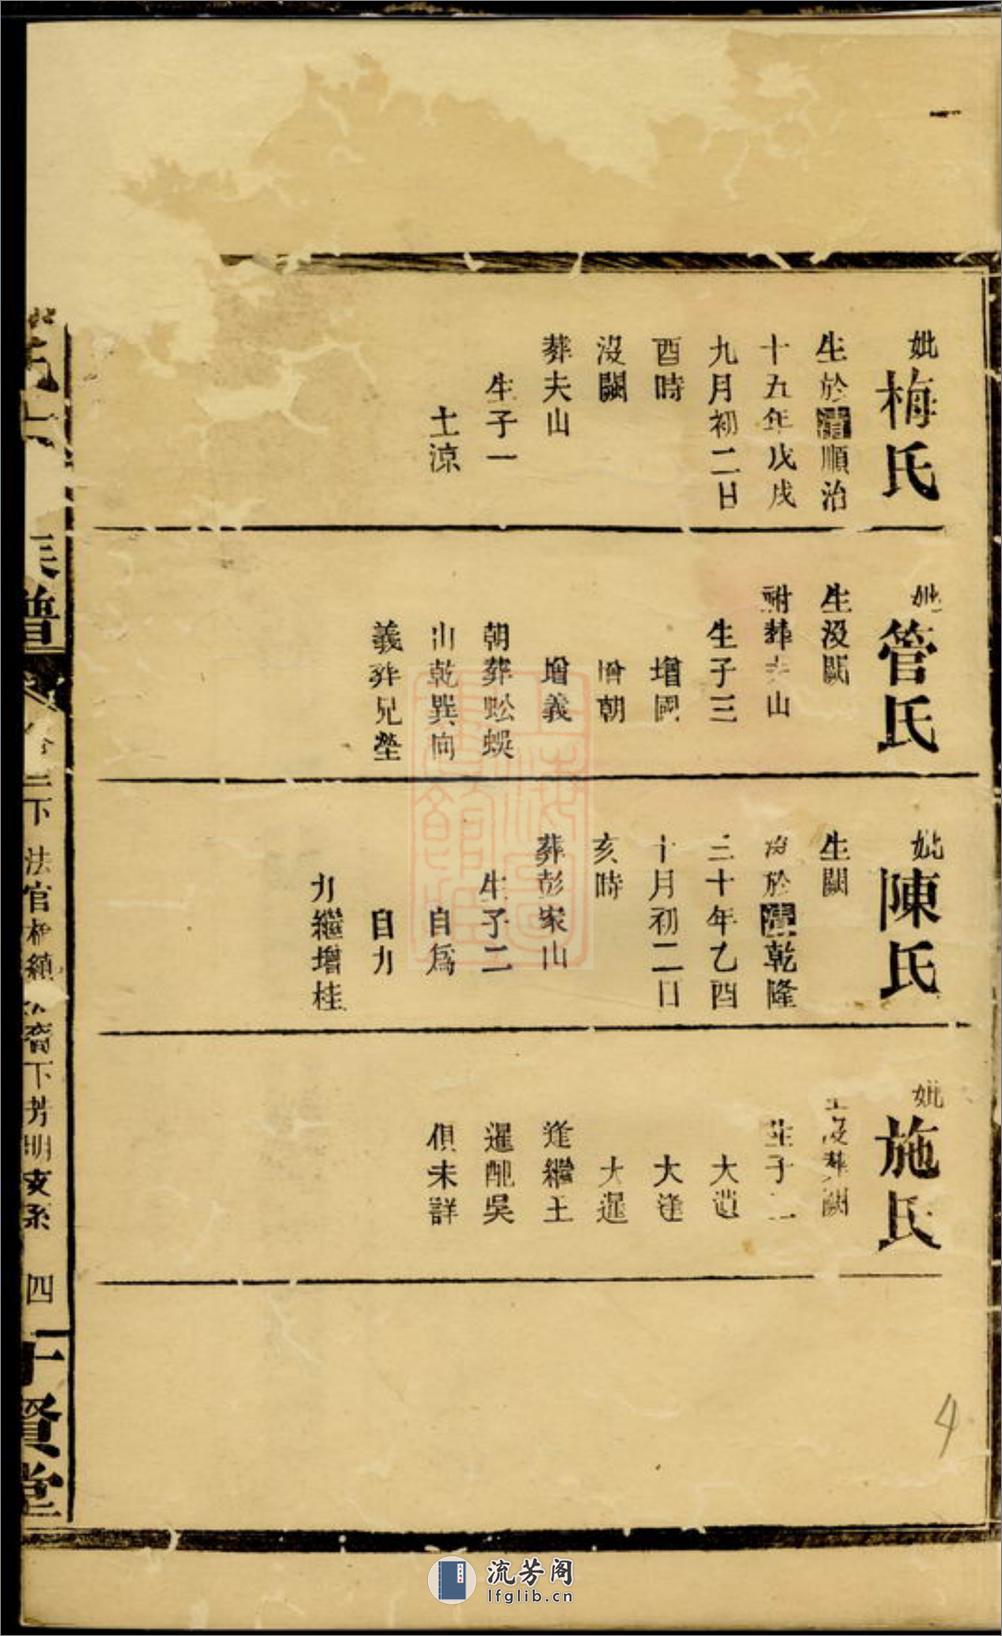 妣梅氏
生於清順治
十五年戊戌
九月初二日
酉時
沒闕
葬夫山
生子一
士涼
妣管氏
生沒闕
祔葬夫山
生子三
增國
增朝
增義
朝葬蚣蜈
山乾巽向
義葬兄塋
妣陳氏
生闕
沒於清乾隆
三十年乙酉
十月初二日
亥時
葬彭家山
生子二
自爲
自力
力繼增桂
妣施氏
生沒葬闕
生子
大遒
大逢
大暹
逢繼王
暹配吳
俱未詳
族譜
下 法官 裔下芳明支系 四
賢堂
4
流芳阁
lfglib.cn